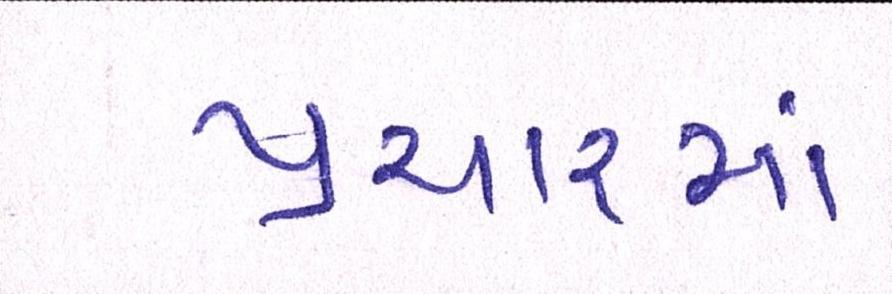 પ્રચારમાં